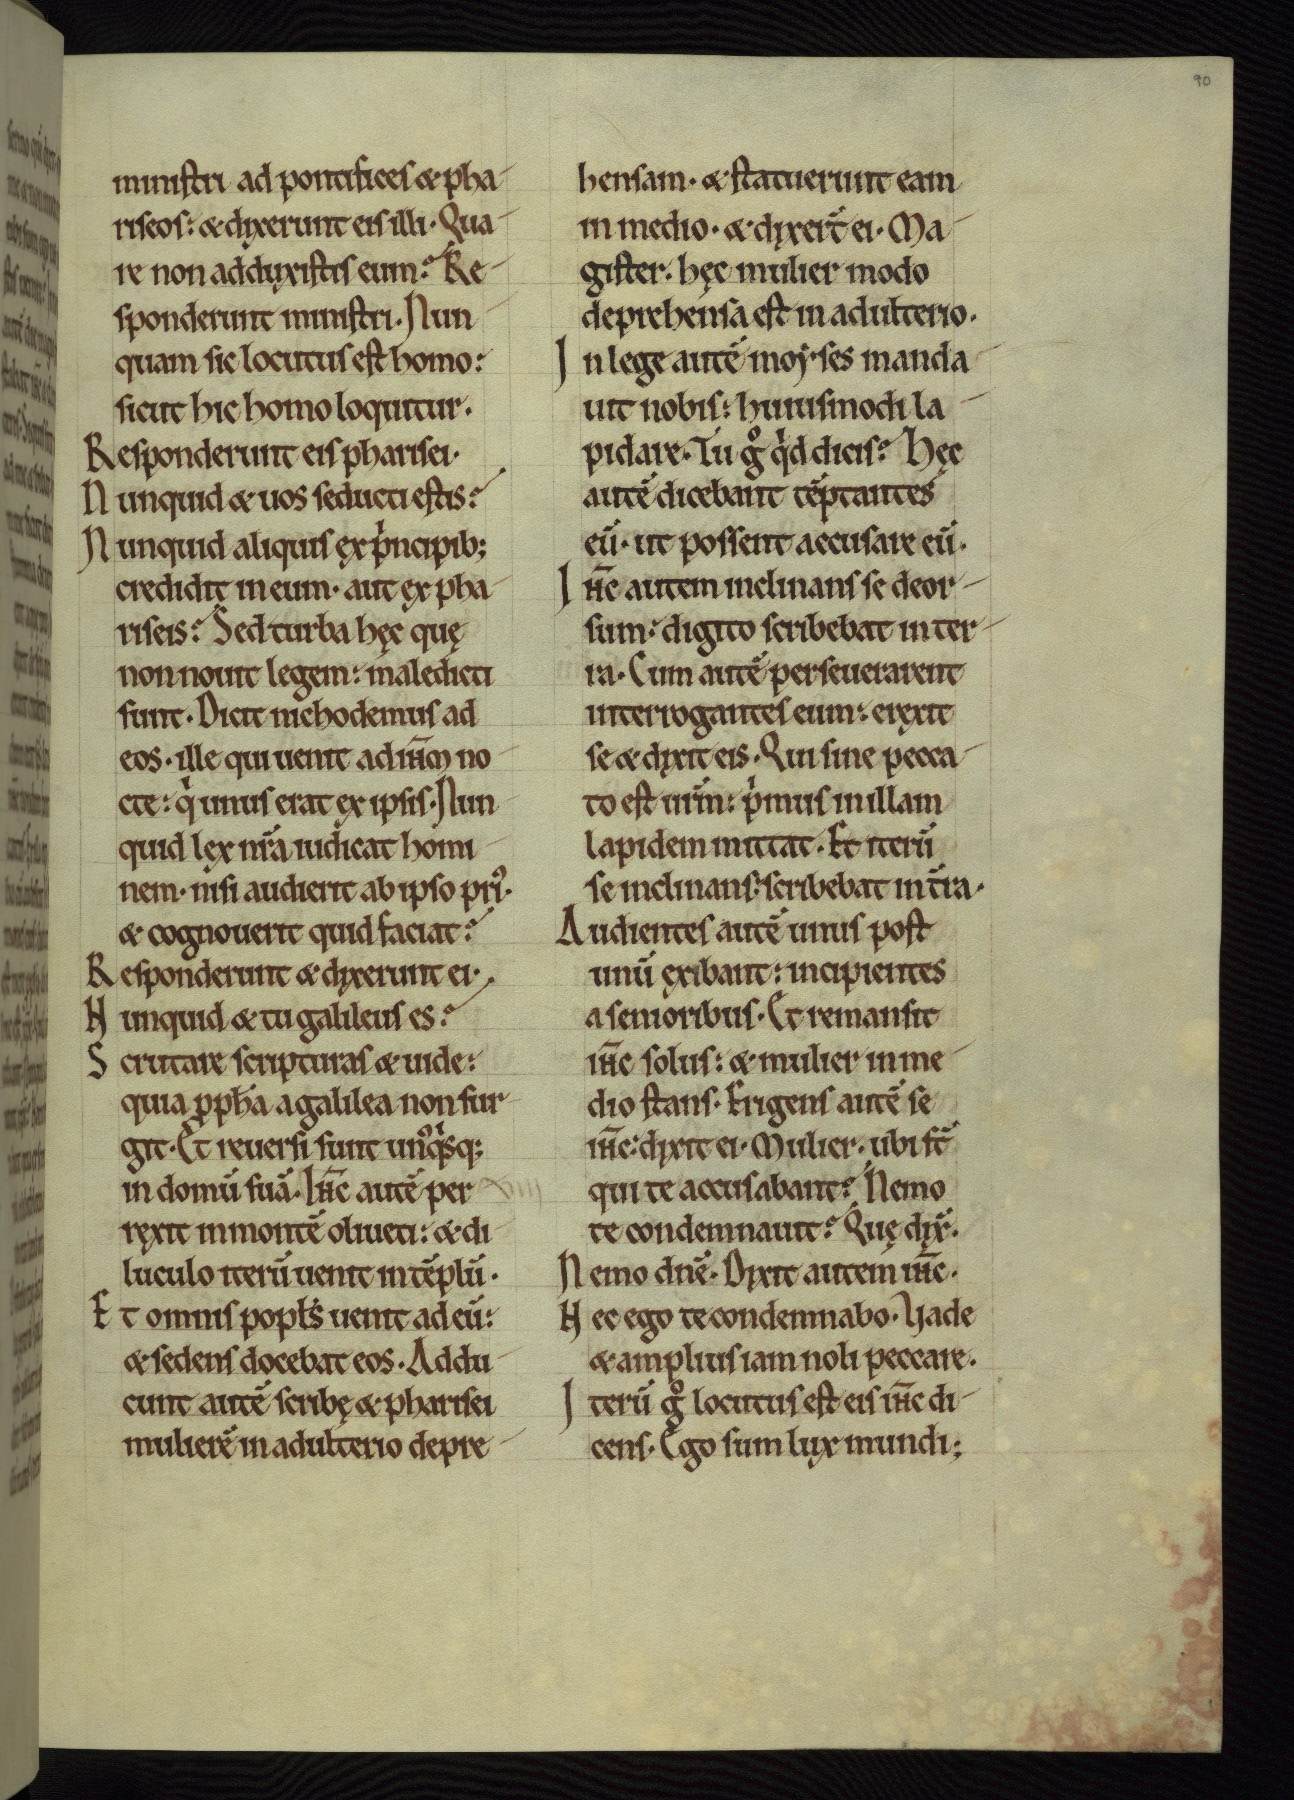 90
ministri ad pontifices & pha
riseos: & dixerunt eis illi. Qua
re non adduxistis eum? Re
sponderunt ministri. Nun
quam sic locutus est homo:
sicut hic homo loquitur.
Responderunt eis pharisei.
Nunquid & uos seducti estis?
Nunquid aliquis ex pͥncipib;
credidit in eum. aut ex pha
riseis? Sed turba hęc quę
non nouit legem: maledicti
sunt. Dicit nichodemus ad
eos. ille qui uenit ad ih̄m no
cte: qͥ unus erat ex ipsis. Nun
quid lex nr̄a iudicat homi
nem. nisi audierit ab ipso priꝰ.
& cognouerit quid faciat?
Responderunt & dixerunt ei.
Nunquid & tu galileus es?
Scrutare scripturas & uide:
quia ꝓph̄a a galilea non sur
git. Et reuersi sunt unꝰqͥsq;
in domū suā. Ih̄c autē per
rexit in montē oliueti: & di
luculo iterū uenit in tēplū.
Et omnis popłs uenit ad eū:
& sedens docebat eos. Addu
cunt autē scribę & pharisei
mulierē in adulterio depre
xiiii
hensam. & statuerunt eam
in medio. & dixer̄t ei. Ma
gister. hęc mulier modo
deprehensa est in adulterio.
In lege autē moyses manda
uit nobis: huiusmodi la
pidare. Tu gͦ qͥd dicis? Hęc
autē dicebant tēptantes
eū. ut possent accusare eū.
Ih̄c autem inclinans se deor
sum: digito scribebat in ter
ra. Cum autē perseuerarent
interrogantes eum: erexit
se & dixit eis. Qui sine pecca
to est ur̄m: pͥmus in illam
lapidem mittat. Et iterū
se inclinans: scribebat in t̄ra.
Audientes autē unus post
unū exibant: incipientes
a senioribus. Et remansit
ih̄c solus: & mulier in me
dio stans. Erigens autē se
ih̄c: dixit ei. Mulier. ubi sт̄
qui te accusabant? Nemo
te condemnauit? Quę dix̄.
Nemo dn̄e. Dixit autem ih̄c.
Nec ego te condemnabo. Uade
& amplius iam noli peccare.
Iterū gͦ locutus est eis ih̄c di
cens. Ego sum lux mundi;